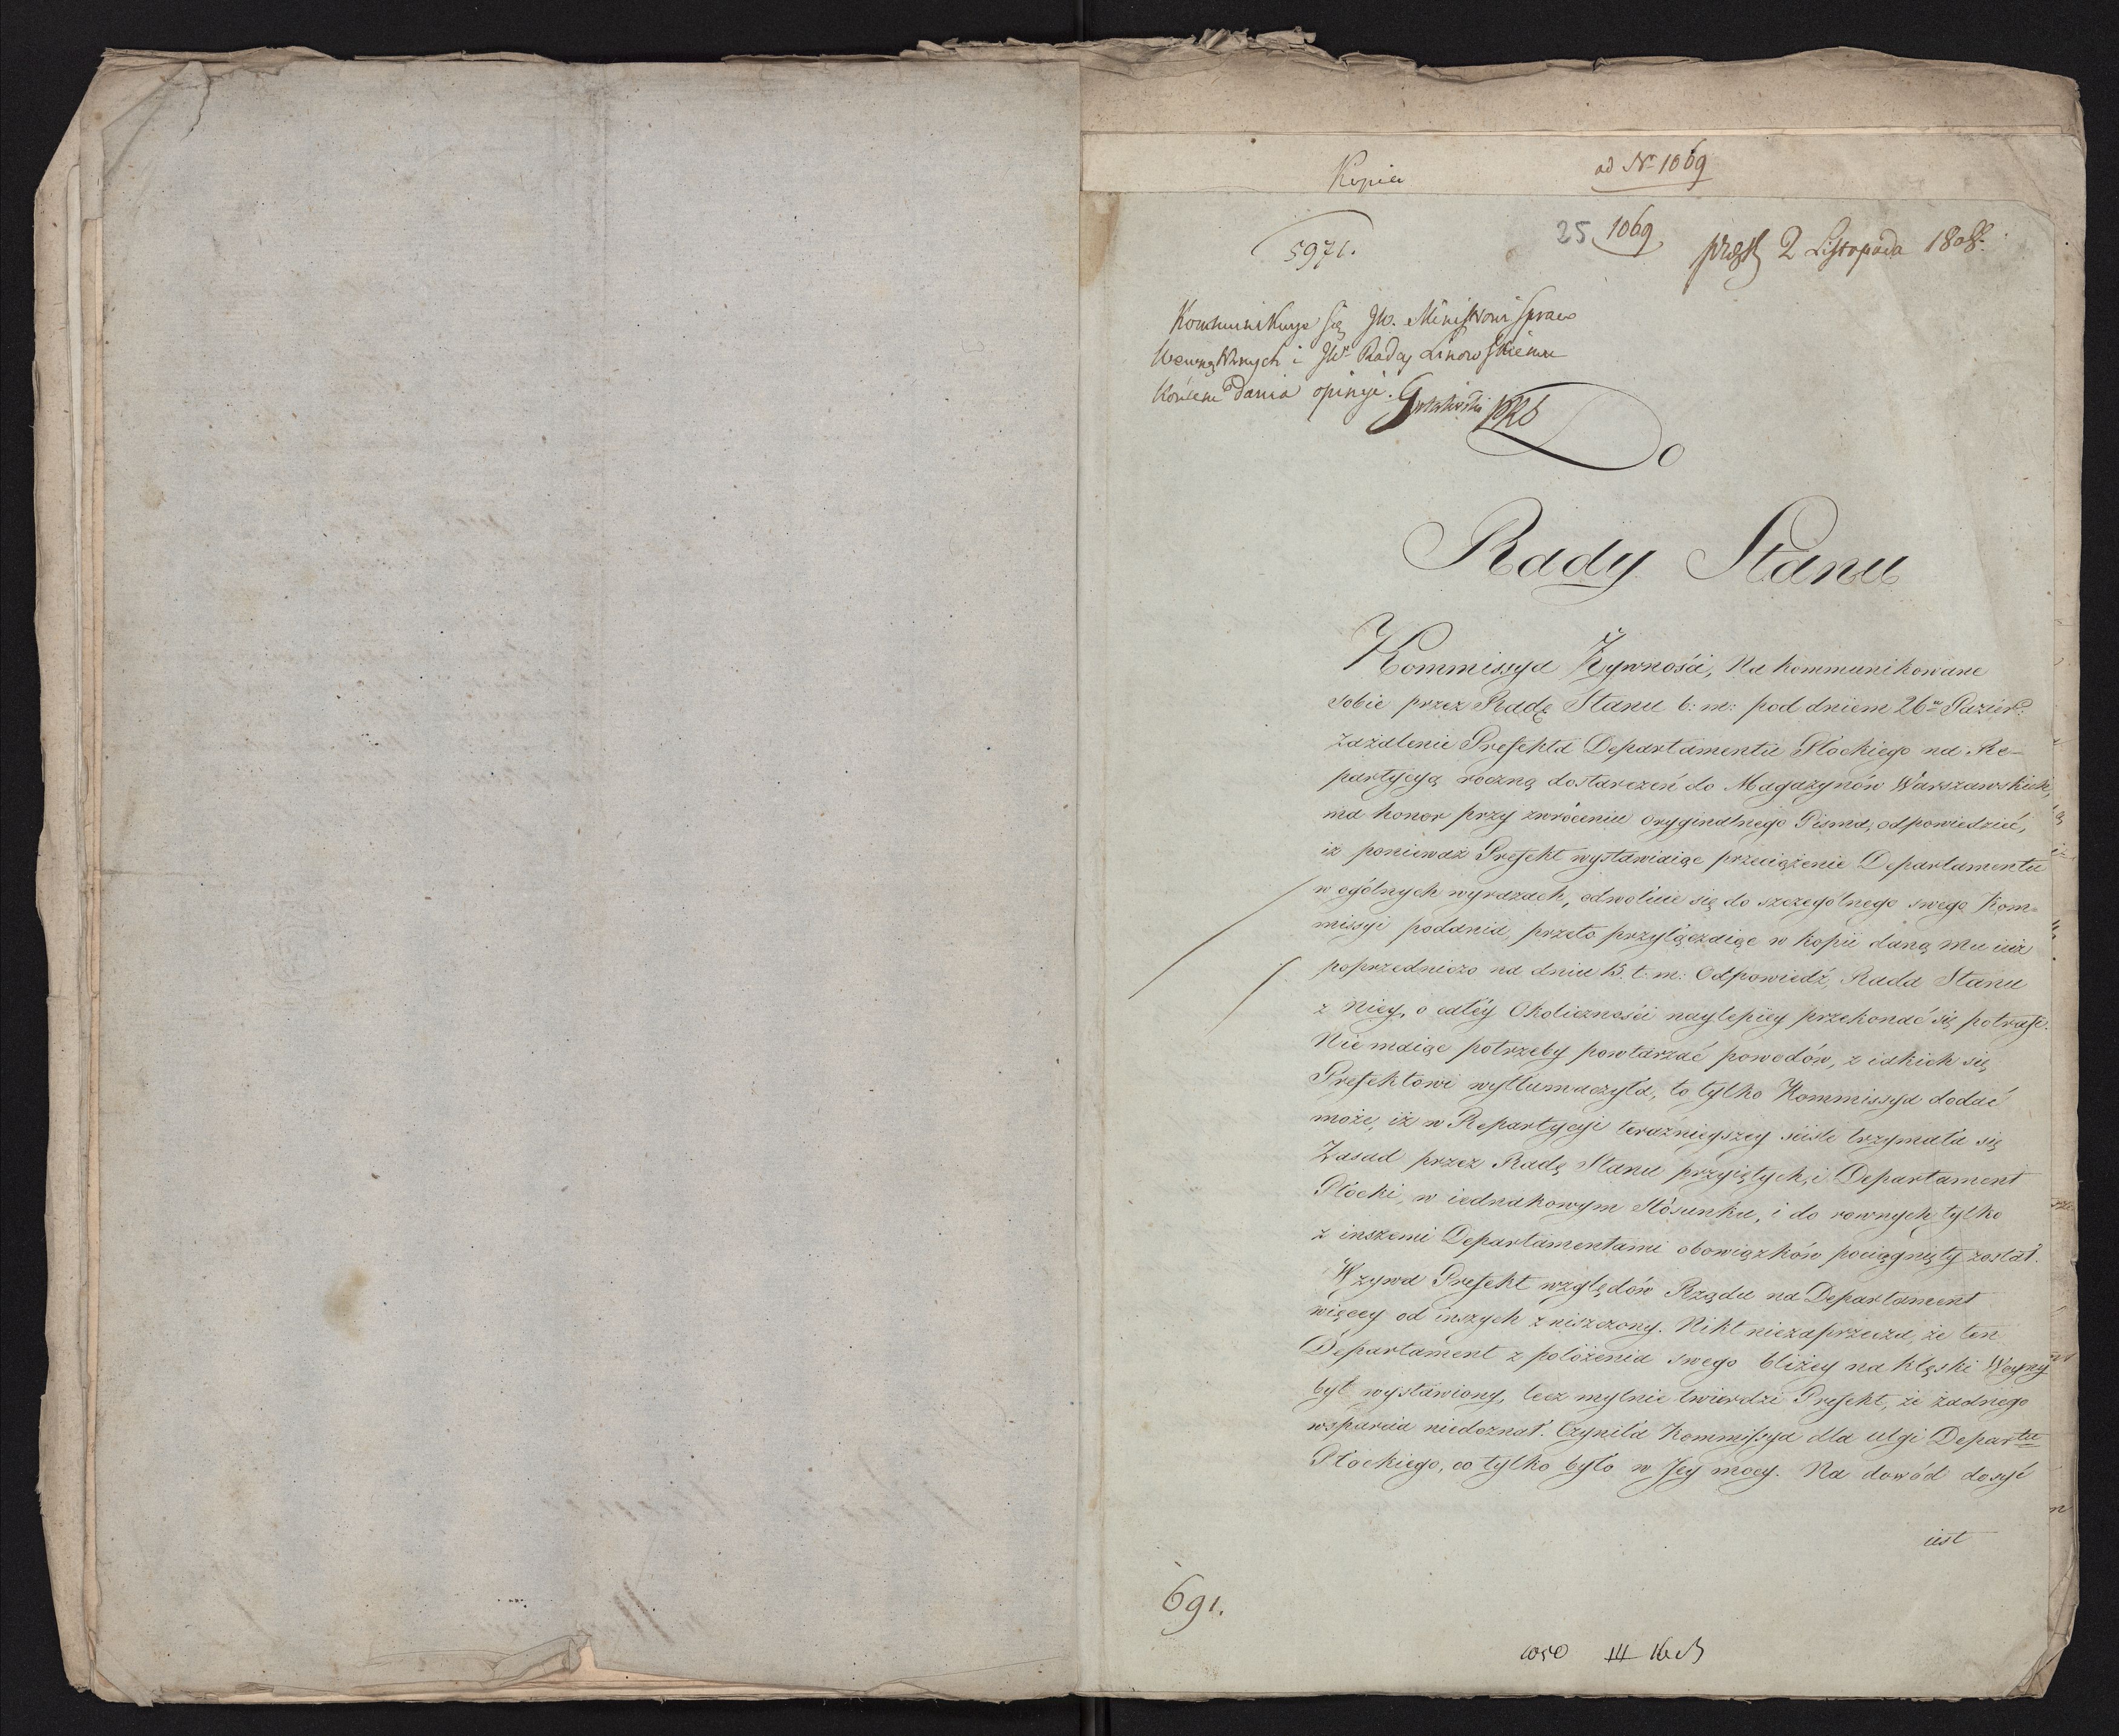 Kopia
ad Nr 1069
25 1069
5971.
2 Listopada 1808.
Kommunikuje się JW. Ministrowi Spraw
Wewnętrznych i JWr Radcy Linowskiemu
końcem dania opinji. Gutakowski
Do
Rady Stanu
Kommissya Zywności, Na kommunikowane
sobie przez Radę Stanu b: m: pod dniem 26go Pazier:
zażalenie Prefekta Departamentu Płockiego na Re-
partycyą roczną dostarczeń do Magazynów Warszawskich,
ma honor przy zwróceniu oryginalnego Pisma, odpowiedzieć,
iż ponieważ Prefekt wystawiaiąc przeciążenie Departamentu
w ogólnych wyrazach, odwołuie się do szczególnego swego Kom=
missyi podania, przeto przyłączaiąc w kopii daną mu iuż
poprzedniczo na dniu 15. t: m: Odpowiedź, Rada Stanu
z Niey, o całéy Okoliczności naylepiey przekonać się potrafi.
Nie maiąc potrzeby powtarzać powodów, z iakich się
Prefektowi wytłumaczyła, to tylko Kommissya dodać
może, iż w Repartycyi teraznieyszey ściśle trzymała się
Zasad przez Radę Stanu przyiętych, i Departament
Płocki, w iednakowym Stósunku, i do rownych tylko
z inszemi Departamentami obowiązków pociągnięty został.
Wzywa Prefekt względów Rządu na Departament
więcey od inszych zniszczony. Nikt niezaprzecza, że ten
Departament z położenia swego bliżey na klęski Woyny
był wystawiony, lecz mylnie twierdzi Prefekt, że żadnego
wsparcia niedoznał. Czyniła Kommissya dla ulgi Departtu
Płockiego, co tylko było w Jey mocy. Na dowód dosyć
iest
691.